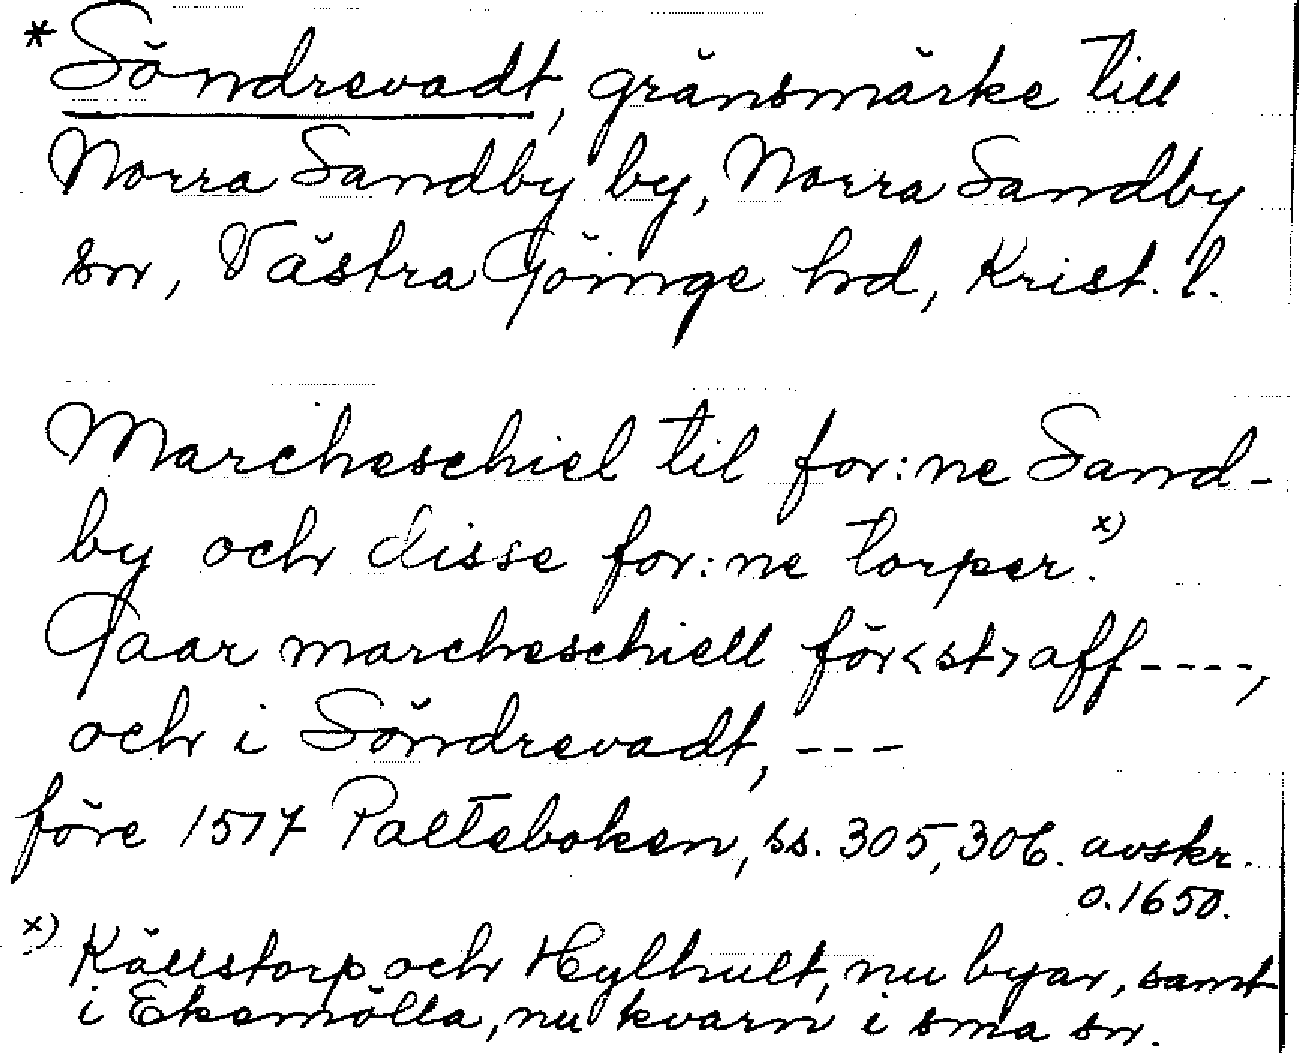 * Söndrevadt, gränsmärke till
Norra Sandby by, Norra Sandby
sn, Västra Göinge hd, Krist. l.
Marcheschiel til for:ne Sand-
by och disse for:ne torper. x)
Gaar marcheschiellför<st> aff ----,
och i Söndrevadt, ---
före 1517 Palteboken, ss. 305, 306. avskr.
o. 1650.
x) Källstorp och Hylhult, nu byar, samt
i Ekemölla, nu kvarn i sma sn.